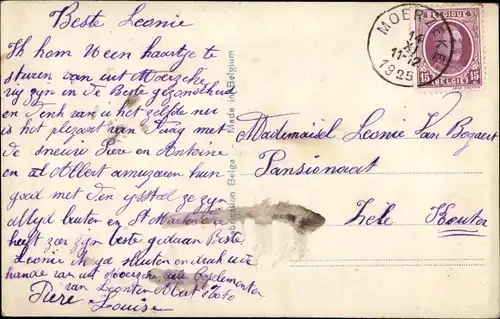 Beste Leonie
Ik kom U een kaartje te
sturen van uit Moerzeke
wij zijn in de Beste gezondheid
en denk van u het zelfde nu
is het plezant van daag met
de sneuw Piere en Antoine
en Albert amuzeren hun
goed met den ijsstoel ze zijn
altyd buiten en St Marten
heeft zeer zyn beste gedaan Beste
Leonie ik ga sluten en druk uwe
hande van uit Moerzeke
van Leonten Albert
Piere Louise
Made in Belgium
Belge
MOERZEKE
14
XI
11-12
1925
BELGIQUE
15 BELGIË 15
Mademaisel Leonie Van Bogaert
Pansionaat
Zele Kouter